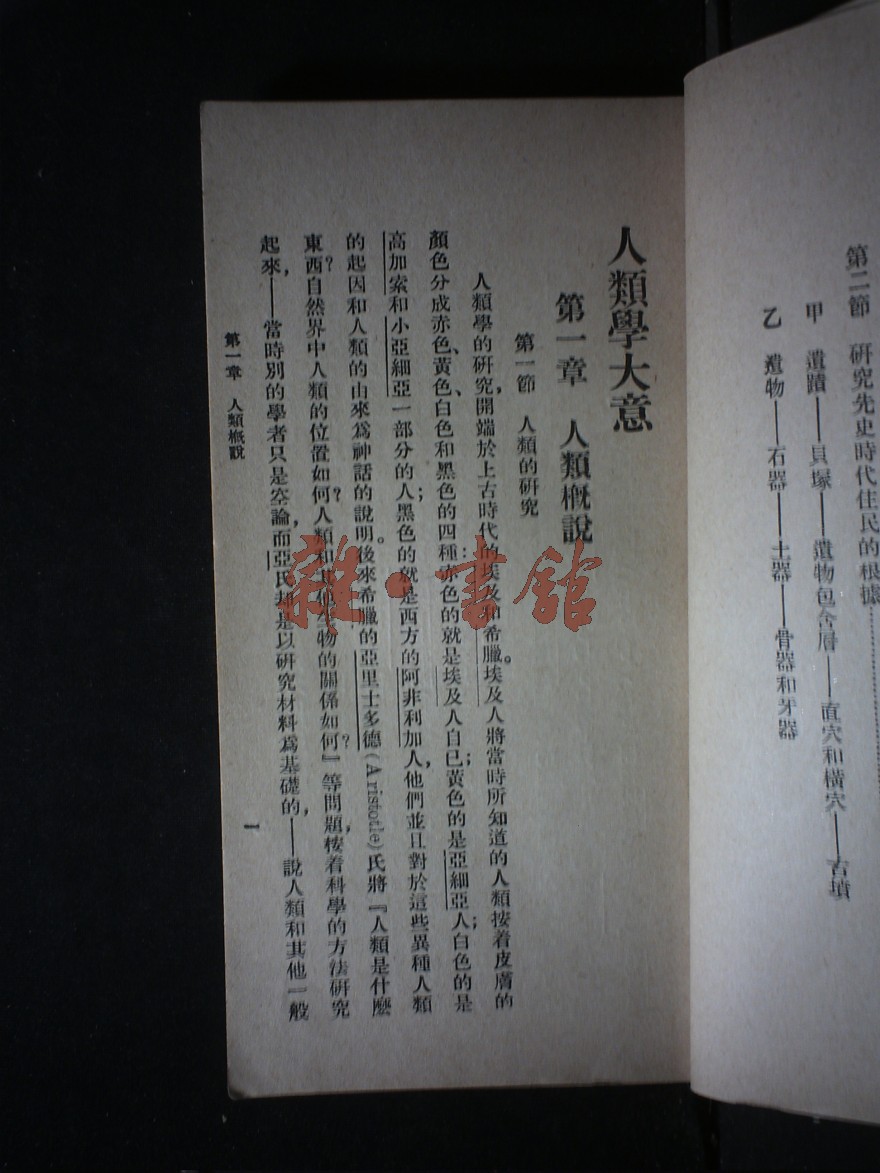 第二節　研究先史時代住民的根據
甲　遺蹟——貝塚——遺物包含層——直穴和橫穴——古墳
乙　遺物——石器——土器——骨器和牙器
人類學大意
第一章　人類概說
第一節　人類的研究
人類學的研究，開端於上古時代的埃及和希臘。埃及人將當時所知道的人類按着皮膚的
顏色分成赤色、黃色、白色和黑色的四種：赤色的就是埃及人自己；黃色的是亞細亞人；白色的是
高加索和小亞細亞一部分的人；黑色的就是西方的阿非利加人，他們並且對於這些異種人類
的起因和人類的由來爲神話的說明。後來希臘的亞里士多德(Aristotle)氏將『人類是什麼
東西？自然界中人類的位置如何？人類和其他生物的關係如何？』等問題，按着科學的方法研究
起來，——當時別的學者只是空論，而亞氏却是以研究材料爲基礎的，——說人類和其他一般
第一章　人類概說
一
雜·書館